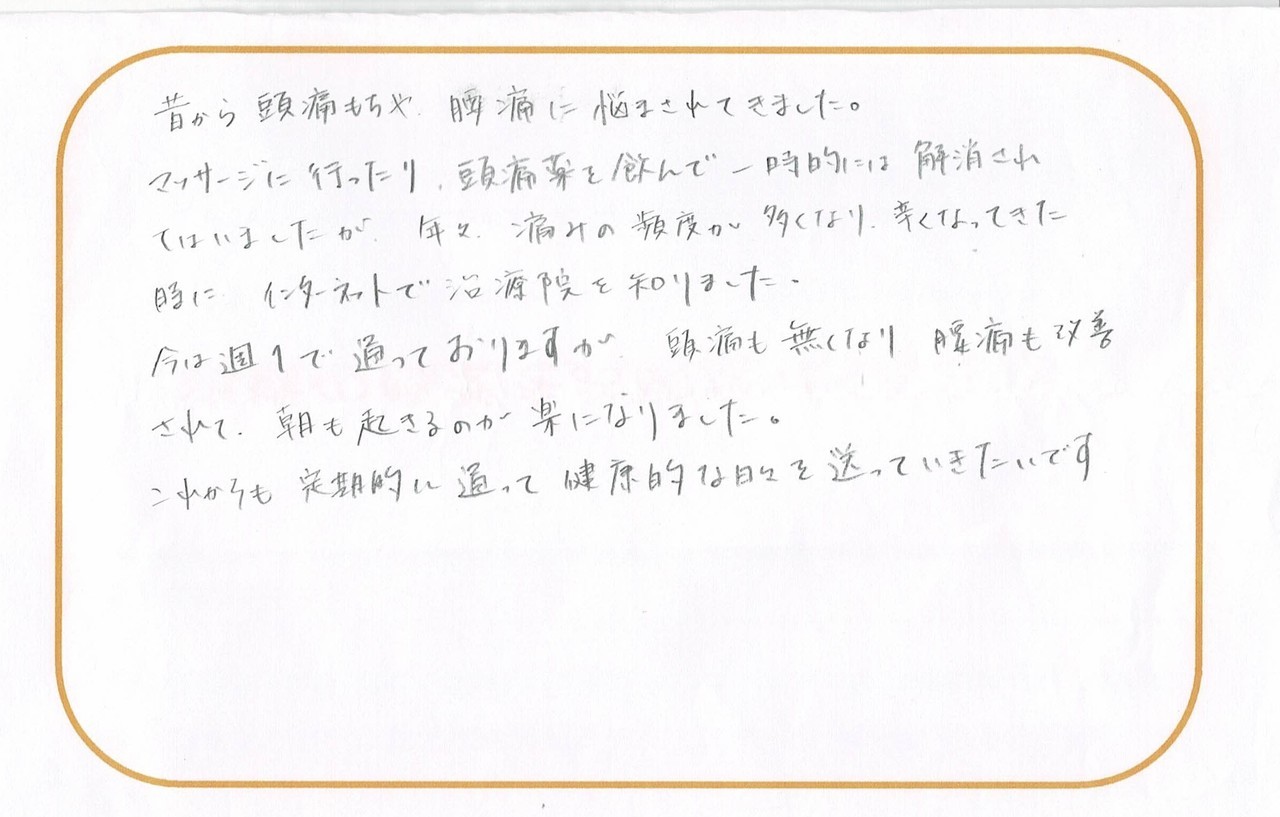 昔から頭痛もちや、腰痛に悩まされてきました。
マッサージに行ったり、頭痛薬を飲んで一時的には解消され
てはいましたが、年々、痛みの頻度が多くなり、辛くなってきた
時に、インターネットで治療院を知りました。
今は週1で通っておりますが、頭痛も無くなり腰痛も改善
されて、朝も起きるのが楽になりました。
これからも定期的に通って健康的な日々を送っていきたいです